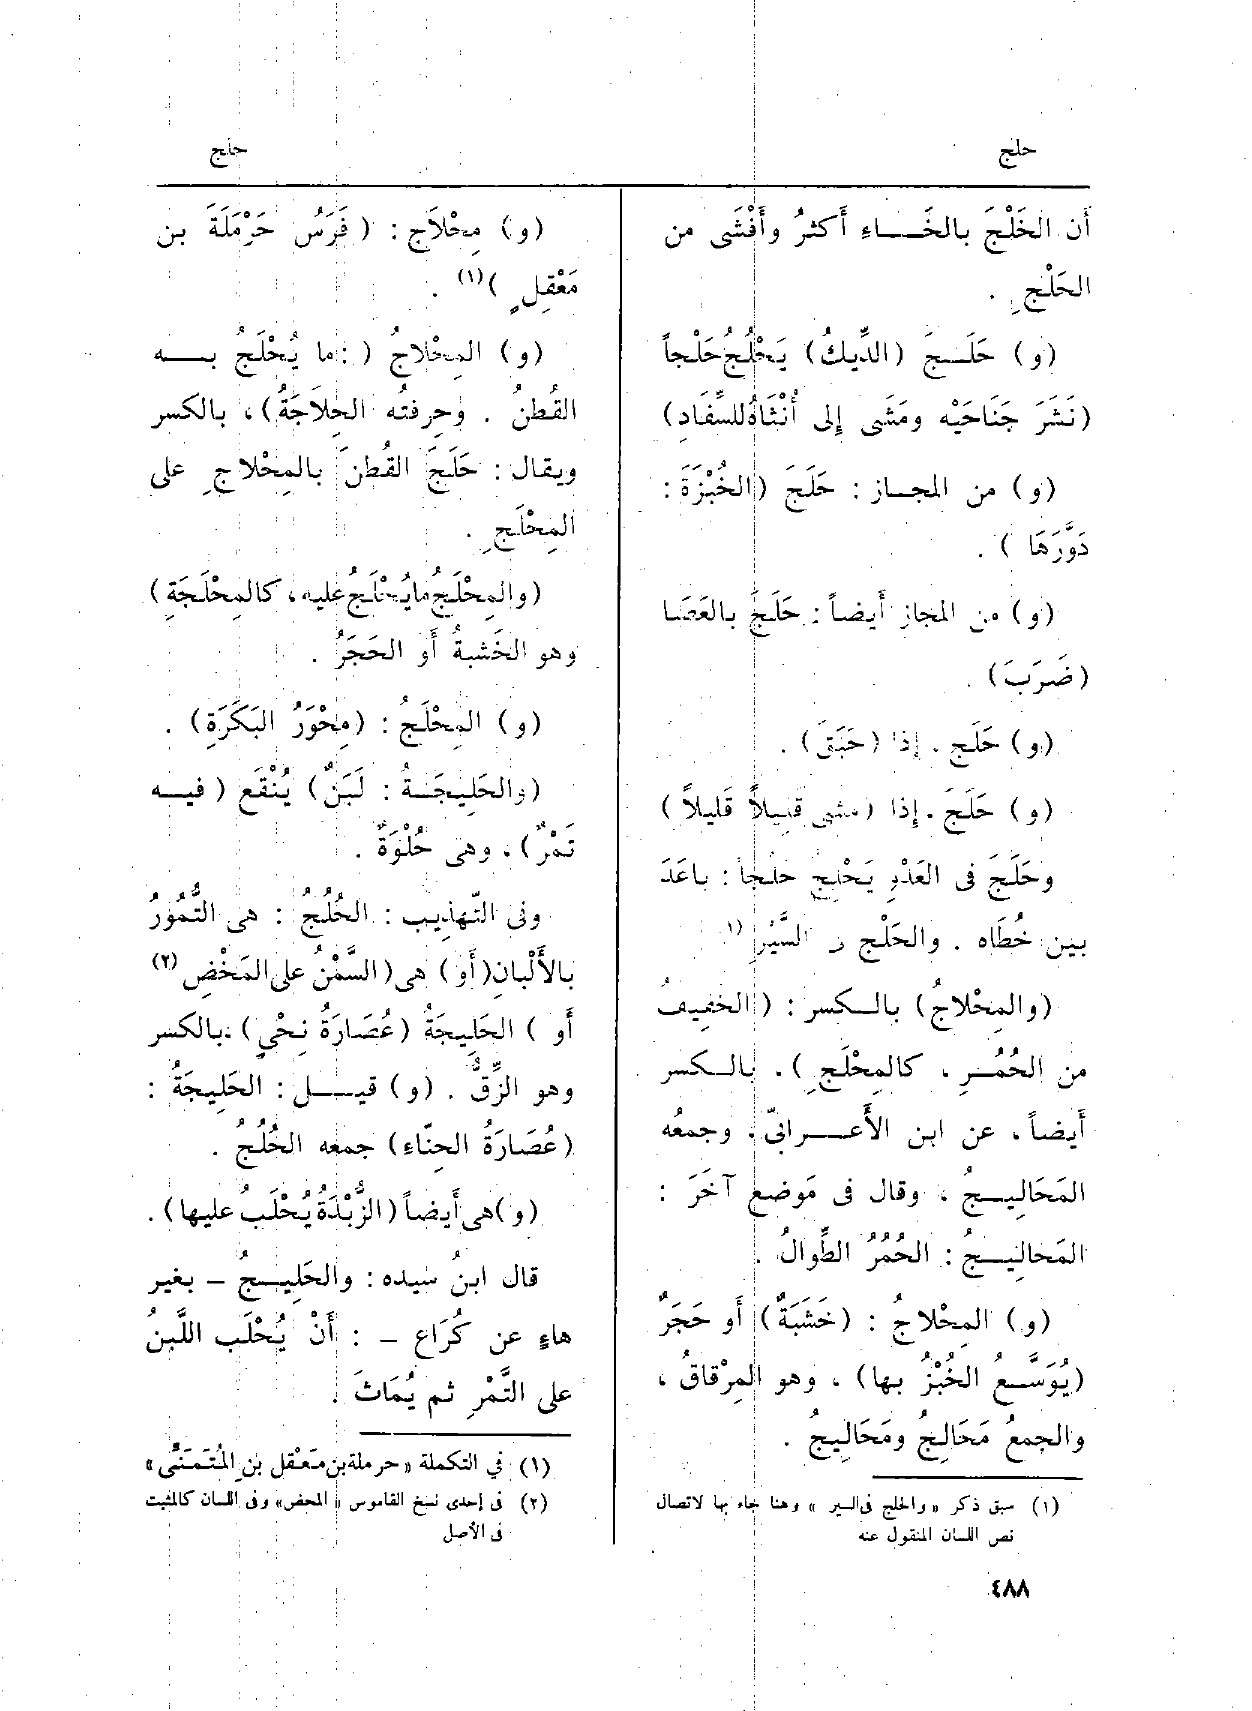 حلج
حلج
أن الخَلْجَ بالخَاءِ أَكثرُ وأَفْشَى من
الحَلْجِ .
(و) حَلَجَ (الدِّيكُ) يَحْلُجُ حَلْجاً
(نَشَرَ جَنَاحَيْه ومَشَى إِلى أُنْثَاهُ للسِّفَادِ)
(و) من المجاز : حَلَجَ (الخُبْزَةَ :
دَوَّرَهَا ) .
(و) من المجازِ أَيضاً : حَلَجَ بالعَصَا
(ضَرَبَ) .
(و) حَلَج . إِذا (حَبَقَ) .
(و) حَلَجَ . إِذا (مشى قَلِيلاً قَلِيلاً )
وحَلَجَ فى العَدْوِ يَحْلِج حلْجاً : باعَدَ
بين خُطَاه . والحَلْج فى السَّيْرِ (١)
(والمِحْلاجُ) بالكسر : (الخفِيفُ
من الحُمُرِ ، كالمِحْلَجِ ) . بالكسر
أَيضاً ، عن ابن الأَعرابىّ ، وجمعُه
المَحَالِيجُ ، وقال فى مَوضع آخَرَ :
المَحاليجُ : الحُمُرُ الطِّوالُ .
(و) المِحْلاجُ : (خَشَبَةٌ) أَو حَجَرٌ
(يُوَسَّعُ الخُبْزُ بها) ، وهو المِرْقاقُ ،
والجمعُ مَحَالِجُ ومَحَالِيجُ .
(١) سبق ذكر « والحلج فى السير » وهنا جاء بها لاتصال
نص اللسان المنقول عنه
(و) مِحْلاَج : ( فَرَسُ حَرْمَلَةَ بن
مَعْقِلٍ )(١) .
(و) المِحْلاجُ ( : ما يُحْلَجُ به
القُطنُ . وحِرفتُه الحِلاَجَةُ) ، بالكسر
ويقال : حَلَجَ القُطنَ بالمِحْلاجِ على
المِحْلَجِ .
(والمِحْلَجُ ما يُحْلَجُ عليه ، كالمِحْلَجَةِ)
وهو الخَشبةُ أَو الحَجَرُ .
(و) المِحْلَجُ : (مِحْوَرُ البَكَرَةِ) .
(والحَلِيجَةُ : لَبَنٌ) يُنْقَع ( فيه
تَمْرٌ) ، وهى حُلْوَةٌ .
وفى التّهذيب : الحُلُجُ : هى التُّمُورُ
بالأَلْبانِ (أَو) هى (السَّمْنُ على المَخْضِ (٢)
أَو ) الحَلِيجَةُ (عُصَارَةُ نِحْيٍ) بالكسر
وهو الزِّقُّ . (و) قيل : الحَلِيجَةُ :
(عُصَارَةُ الحِنّاء) جمعه الحُلُجُ .
(و) هى أَيضاً (الزُّبْدَةُ يُحْلَبُ عليها) .
قال ابنُ سيده : والحَلِيجُ – بغير
هاءٍ عن كُرَاع – : أَنْ يُحْلَب اللَّبنُ
على التَّمْرِ ثم يُمَاثَ .
(١) في التكملة « حرملة بن مَعْقل بن المُتَمَنَّى »
(٢) فى إحدى نسخ القاموس « المحض » وفى اللسان كالمثبت
فى الأصل
٤٨٨